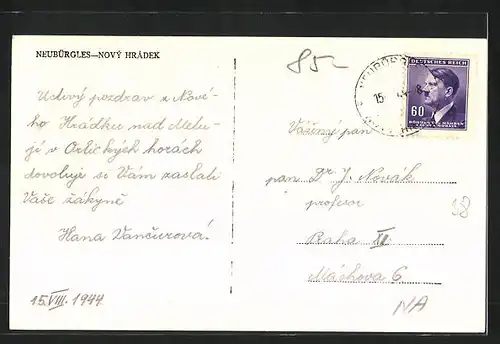 NEUBÜRGLES—NOVÝ HRÁDEK
85–
DEUTSCHES REICH
60
15
Uctivý pozdrav z Nové-
ho Hrádku nad Metu-
jí v Orlických horách
dovoluje si Vám zaslati
Vaše žákyně
Hana Vančurová.
15.VIII. 1944
Vážený pan
pan Dr J. Novák
profesor
Praha XII
Máchova 6
58
NA